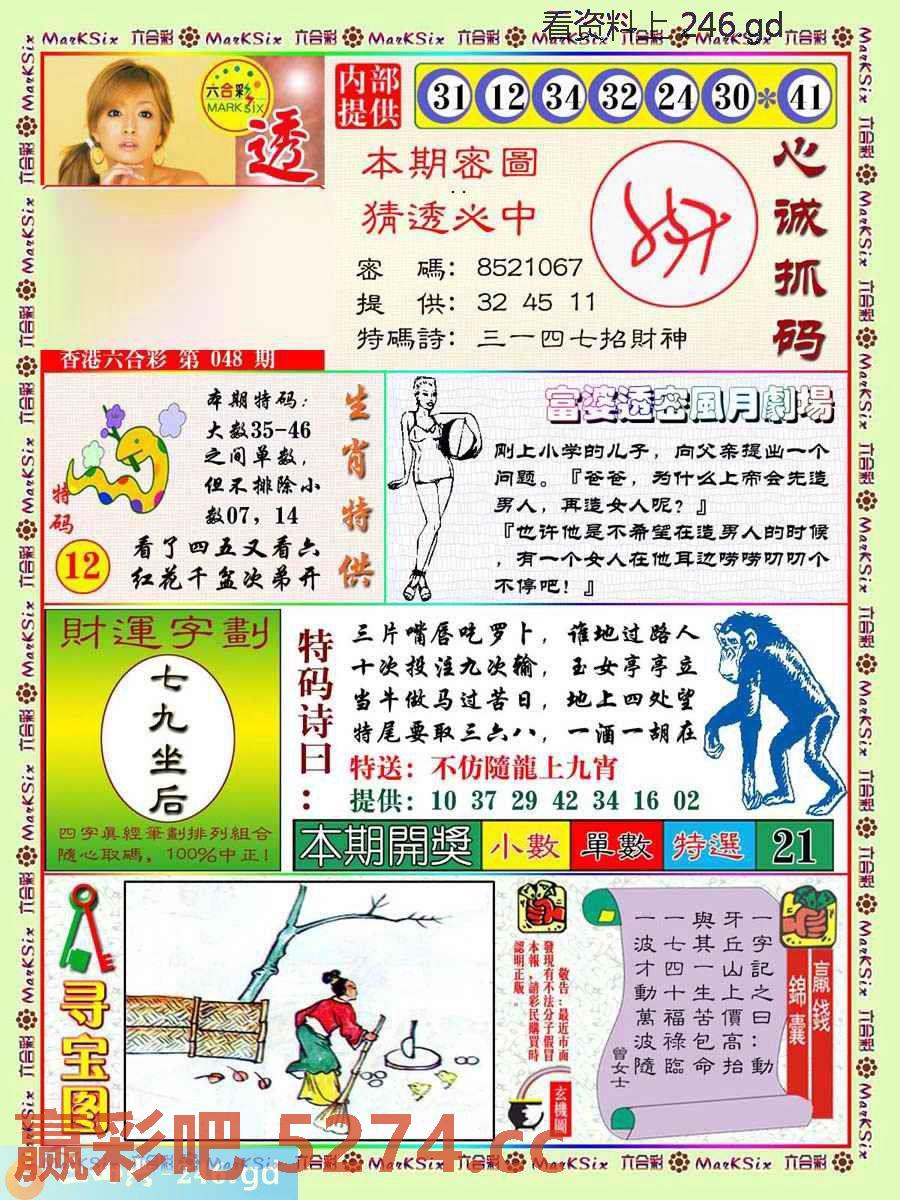 看资料上 246.gd
六合彩
MARK SIX
透
内部
提供
31 12 34 32 24 30 * 41
本期密圖
猜透必中
密 碼: 8521067
提 供: 32 45 11
特碼詩: 三一四七招財神
心诚抓码
香港六合彩 第 048 期
本期特码:
大数35-46
之间单数,
但不排除小
数07, 14
特码
12
看了四五又看六
红花千盆次弟开
生肖特供
富婆透密風月劇場
刚上小学的儿子，向父亲提出一个
问题。『爸爸，为什么上帝会先造
男人，再造女人呢？』
『也许他是不希望在造男人的时候
，有一个女人在他耳边唠唠叨叨个
不停吧！』
財運字劃
七九坐后
四字真經筆劃排列組合
隨心取碼，100%中正!
特码诗曰:
三片嘴唇吃罗卜，谁地过路人
十次投注九次输，玉女亭亭立
当牛做马过苦日，地上四处望
特尾要取三六八，一酒一胡在
特送: 不仿隨龍上九宵
提供: 10 37 29 42 34 16 02
本期開獎 小數 單數 特選 21
寻宝图
敬告:最近市面
發現有不法分子假冒
本報,請彩民購買時
認明正版。
玄機圖
贏錢
錦囊
一字記之曰:動
牙丘山上價高抬
與其一生苦包命
一七四十福祿臨
一波才動萬波隨
曾女士
赢彩吧 5274.cc
246.gd